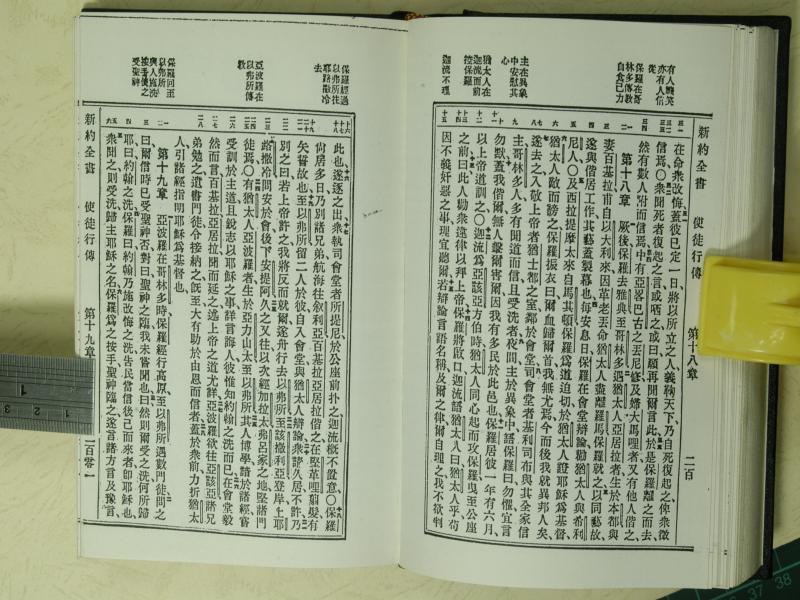 有人譏笑
亦有人信
從
保羅在哥
林多傳教
自食己力
主在異象
中安慰其
心
猶太人在
迦流而前
控保羅
迦流不理
新約全書 使徒行傳 第十八章 二百
在、命衆改悔、蓋彼已定一日、將以所立之人、義鞫天下、乃自死復起之、俾衆徵
信焉、〇衆聞死者復起之言、或哂之、或曰、願再聞爾言此、於是保羅離之而去、
然有數人附而信焉、中有亞畧巴古之丟尼修、及婦大馬哩者、又有他人偕之、
第十八章 厥後保羅去雅典、至哥林多、遇猶太人亞居拉者、生於本都、與
妻百基拉甫自以大利來、因革老丟命猶太人盡離羅馬、保羅就之、以同藝故、
遂與偕居工作、其藝蓋製幕也、每安息日、保羅在會堂辯論、勸猶太人與希利
尼人、〇及西拉提摩太來自馬其頓、保羅爲道迫切、於猶太人證耶穌爲基督、
猶太人敵而謗之、保羅振衣曰、爾血歸爾首、我無尤焉、今而後我就異邦人矣、
遂去之、入敬上帝者猶士都之室、鄰於會堂、司會堂者基利司布、與其全家信
主、哥林多人多有聞道而信、且受洗者、夜間主於異象中語保羅曰、勿懼、宜言
勿默、蓋我偕爾、無人擊爾害爾、因我有多民於此邑也、保羅居彼一年有六月、
以上帝道訓之、〇迦流爲亞該亞方伯時、猶太人同心起而攻保羅、曳至公座
之前、曰、此人勸衆違律以拜上帝、保羅將啟口、迦流語猶太人曰、猶太人乎、苟
因不義奸惡之事、理宜聽爾、若辯論言語名稱、及爾之律、爾自理之、我不欲判
保羅經過
以弗所往
耶路撒冷
去
亞波羅在
以弗所傳
教
保羅回至
以弗所
與人施洗
按手使之
受聖神
此也、遂逐之出、衆執司會堂者所提尼、於公座前扑之、迦流概不置意、〇保羅
尚居多日、乃別諸兄弟、航海往敘利亞、百基拉亞居拉偕之、在堅革哩薙髮、有
矢誓故也、至以弗所、留二人於彼、自入會堂、與猶太人辯論、衆請久居、不許、乃
別之曰、若上帝許之、我將反而就爾、遂舟行去以弗所、至該撒利亞登岸、上耶
路撒冷、問安於會、後下安提阿、久之又往、以次經加拉太弗呂家之地、堅諸門
徒焉、〇有猶太人亞波羅者、生於亞力山太、至以弗所、其人博學、諳於諸經、嘗
受訓於主道、且銳志以耶穌之事、詳言誨人、彼惟知約翰之洗而已、在會堂毅
然而言、百基拉亞居拉聞而延之、述上帝之道尤詳、亞波羅欲往亞該亞、諸兄
弟勉之、遺書門徒、令接納之、旣至、大有助於由恩而信者、蓋於衆前力折猶太
人、引諸經指明耶穌爲基督也、
第十九章 亞波羅在哥林多時、保羅經行高原、至以弗所、遇數門徒、問之
曰、爾信時、已受聖神否、對曰、聖神之臨、我未嘗聞也、曰、然則爾受之洗何所歸
耶、曰、約翰之洗、保羅曰、約翰乃施改悔之洗、告民當信後己而來者、卽耶穌也、
衆聞之、則受洗歸主耶穌之名、保羅爲之按手、聖神臨之、遂言諸方言、及豫言、
新約全書 使徒行傳 第十九章 二百零一
1 2 3
37 38